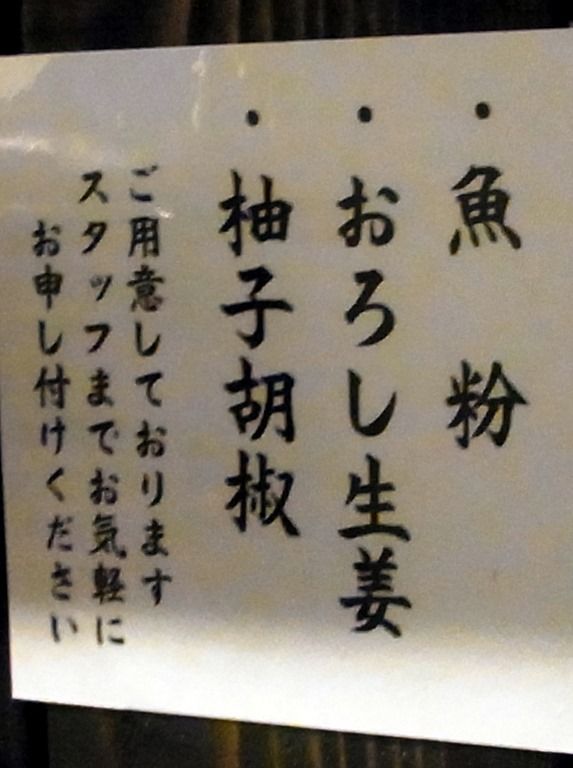 ・魚粉
・おろし生姜
・柚子胡椒
ご用意しております
スタッフまでお気軽に
お申し付けください